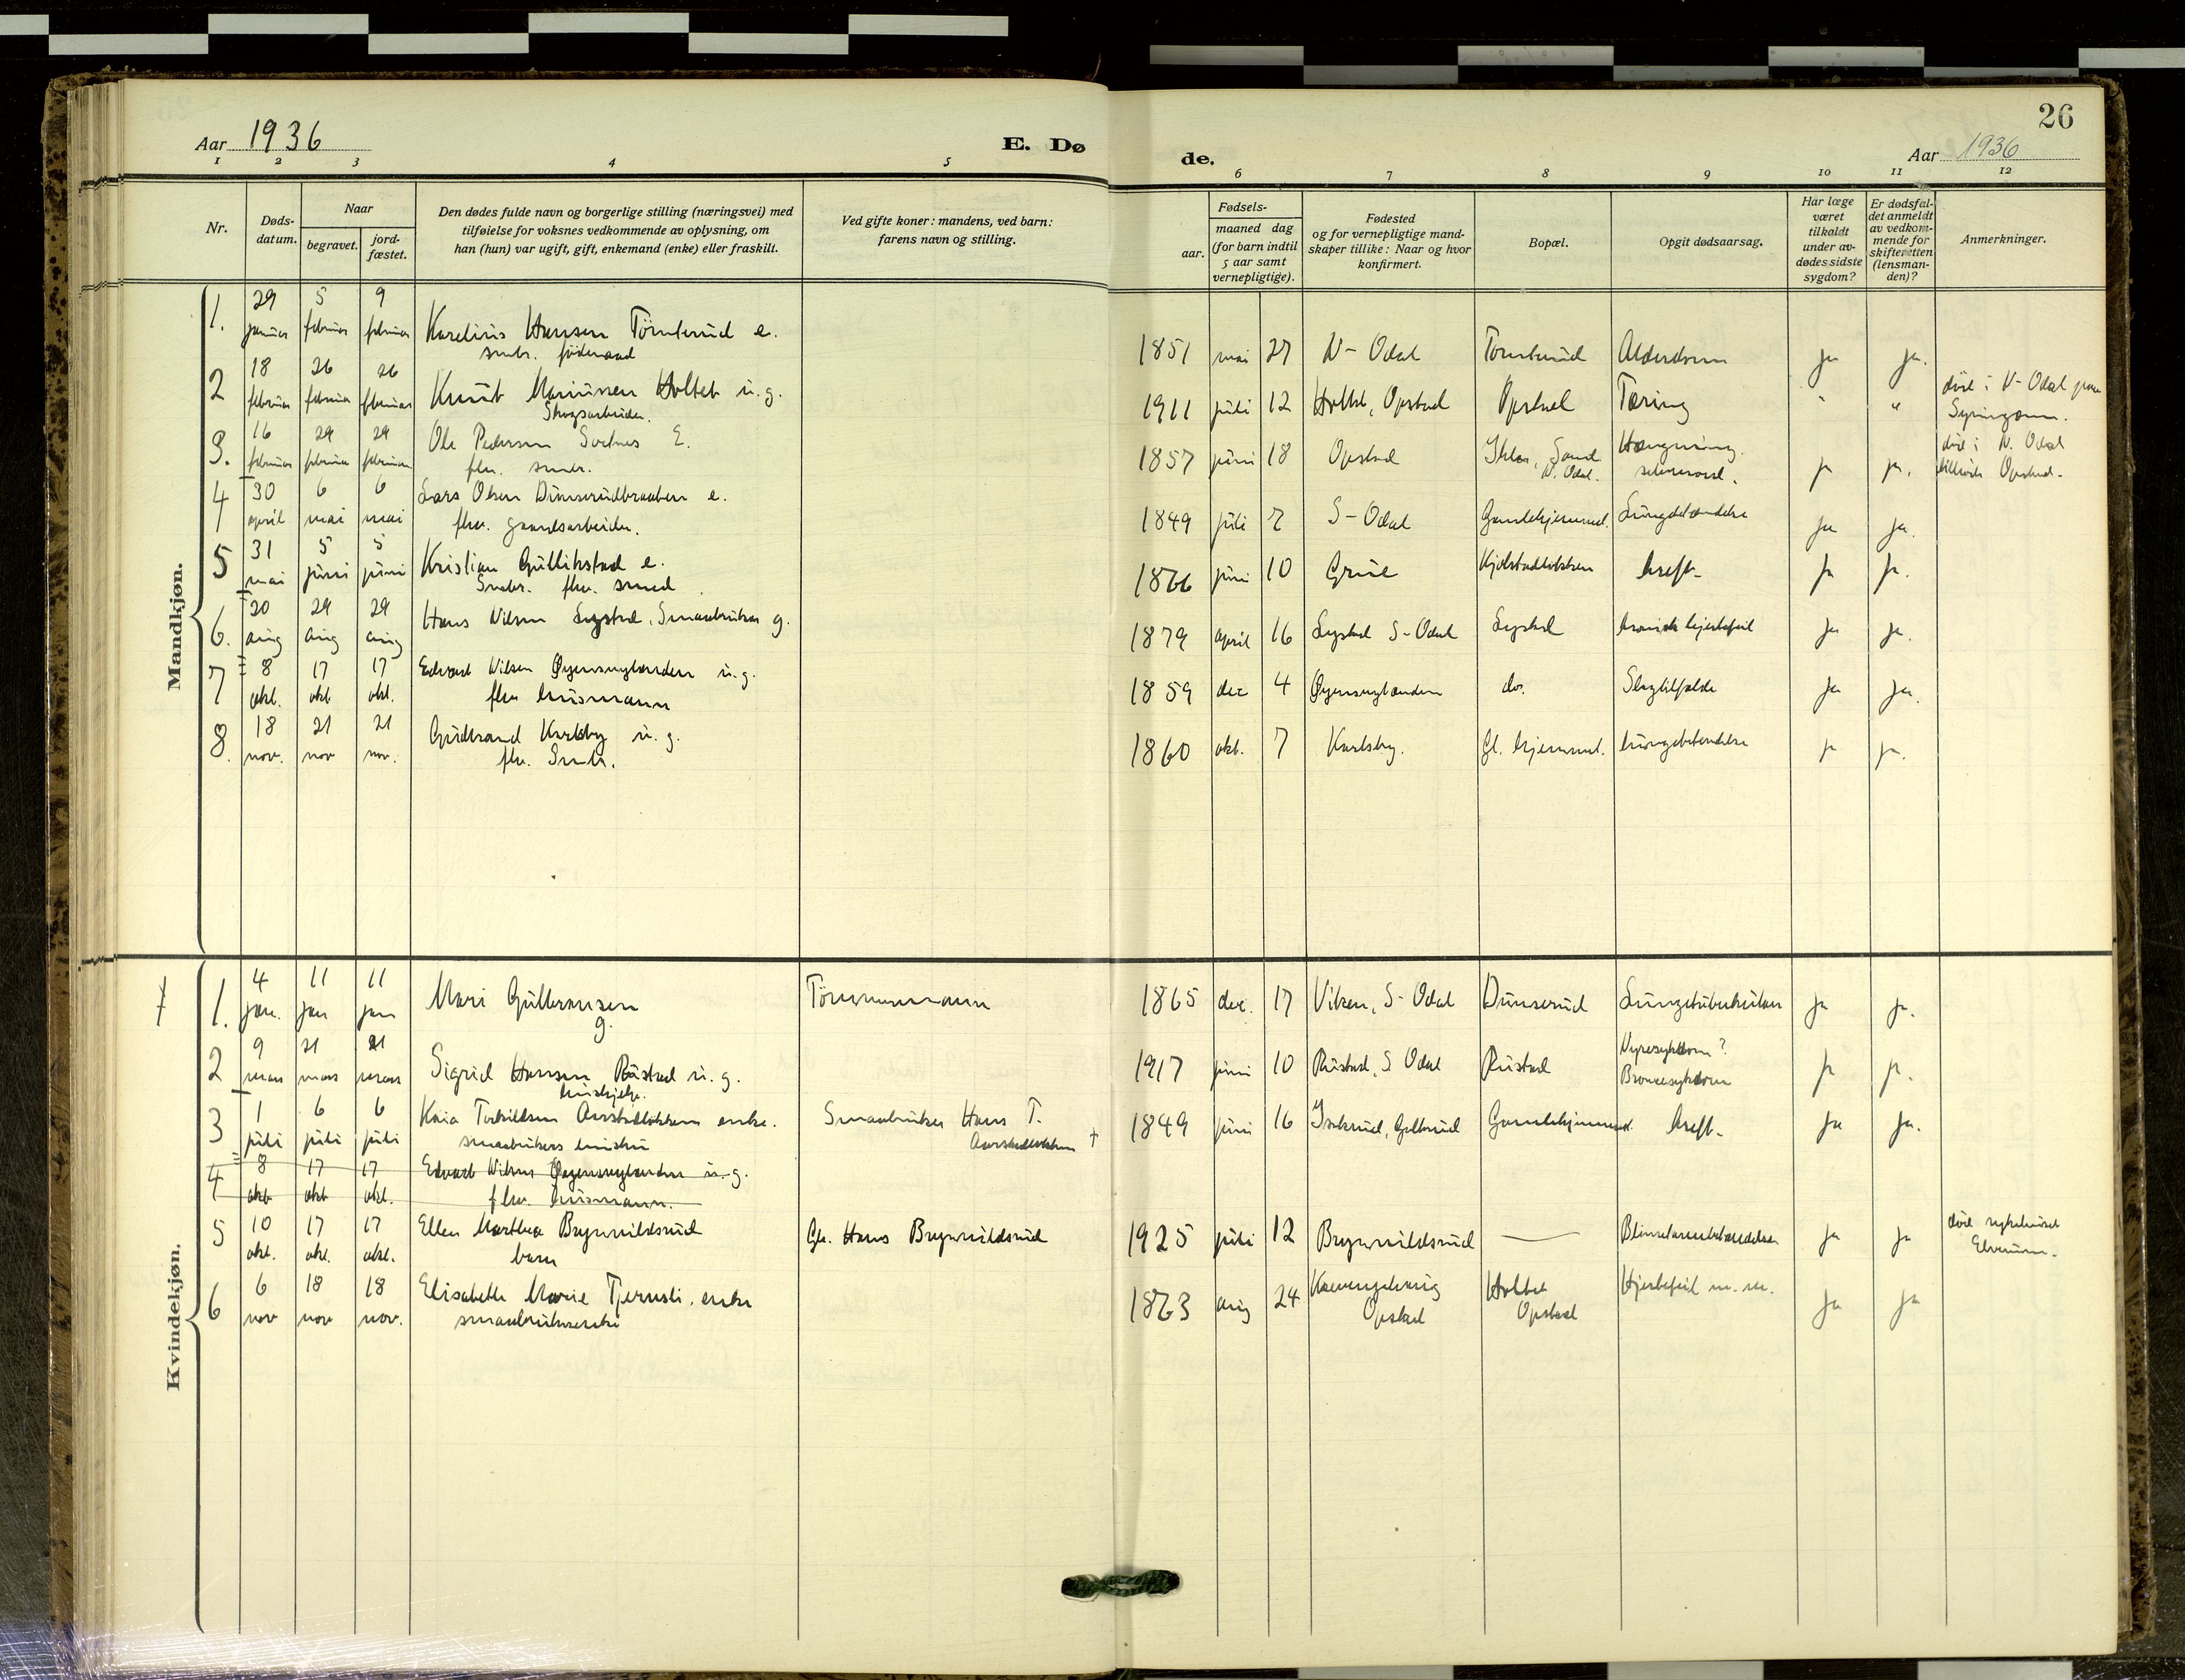 26
Aar 1936
E. Dø
de.
Aar 1936
1 2 3 4 5 6 7 8 9 10 11 12
Nr.
Døds-
datum.
Naar
begravet.
jord-
fæstet.
Den dødes fulde navn og borgerlige stilling (næringsvei) med
tilføielse for voksnes vedkommende av oplysning, om
han (hun) var ugift, gift, enkemand (enke) eller fraskilt.
Ved gifte koner: mandens, ved barn:
farens navn og stilling.
Fødsels-
aar.
maaned dag
(for barn indtil
5 aar samt
vernepligtige).
Fødested
og for vernepligtige mand-
skaper tillike: Naar og hvor
konfirmert.
Bopæl.
Opgit dødsaarsag.
Har læge
været
tilkaldt
under av-
dødes sidste
sygdom?
Er dødsfal-
det anmeldt
av vedkom-
mende for
skifteretten
(lensman-
den)?
Anmerkninger.
Mandkjøn.
1. 29 januar 5 februar 9 februar Karelius Hansen Törnterud e. 1851 mai 27 N-Odal Törnterud Alderdom ja ja.
smbr. föderaad
2 18 februar 26 februar 26 februar Knut Mariussen Holtet u.g. 1911 juli 12 Holtet, Opstad Opstad Tæring " " död i N-Odal paa
Skogsarbeider. Syningom.
3. 16 februar 29 februar 29 februar Ole Pedersen Sætnes E. 1857 juni 18 Opstad Sand Hængning ja ja. död i N. Odal
flw. smbr. N. Odal. selvmord. tilhörte Opstad.
4 30 april 6 mai 6 mai Lars Olsen Dunserudbraaten e. 1849 juli 7 S-Odal Gamlehjemmet. Lungebetændelse ja ja.
fhv. gaardsarbeider.
5 31 mai 5 juni 5 juni Kristian Gullikstad e. 1866 juni 10 Grue Kjölstadlökken kreft- ja ja.
Smbr. fhv. smed
6. 20 aug 29 aug 29 aug Hans Nilsen Lystad, Smaabruker g. 1879 april 16 Lystad S-Odal Lystad kronisk hjertefeil ja ja.
7 8 okt. 17 okt 17 okt. Edvard Nilsen Øyermoylanden u.g. 1859 dec 4 Øyermoylanden do. Slagtilfælde ja ja.
fhv husmann
8. 18 nov. 21 nov 21 nov. Gudbrand Karlsby u.g. 1860 okt. 7 Karlsby. Gl. hjemmet. lungebetendelse ja ja.
fhv. Smbr.
Kvindekjøn.
1. 4 jan. 11 jan 11 jan Mari Gulbransen Tömmermann 1865 dec. 17 Viken, S-Odal Dunserud Lungetuberkulose ja ja.
g.
2 9 mars 21 mars 21 mars Sigrid Hansen Rustad u.g. 1917 juni 10 Rustad, S Odal Rustad Nyresykdom? ja ja.
hushjelp. Broncesykdom
3 1 juli 6 juli 6 juli Kaia Torkildsen Aarstadlökken enke. Smaabruker Hans T. 1849 juni 16 Gamlehjemmet kreft- ja ja.
smaabrukers hustru Aarstadlökken †
4 8 okt 17 okt 17 okt. Edvard Nilsen Øyermoylanden u.g.
fhv. husmann.
5 10 okt. 17 okt. 17 okt. Ellen Marthea Brynnildsrud Gbr. Hans Brynnildsrud 1925 juli 12 Brynnildsrud — Blindtarmbetændelse ja ja död sykehuset
barn Elverum.
6 6 nov 18 nov 18 nov. Elisabeth Marie Tjernsli, enke 1863 aug 24 Kvernydhaug Holtet Hjertefeil m.m. ja ja
smaabrukerenke Opstad Opstad